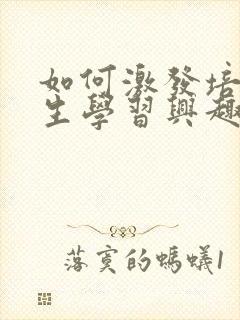 如何激發培
生學習興趣
落寞的螞蟻1